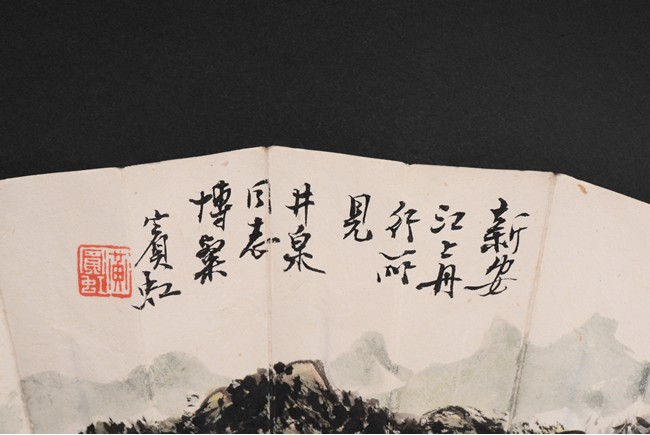 新安
江上舟
行所
見
井泉
同志
博粲
賓虹
黃賓虹